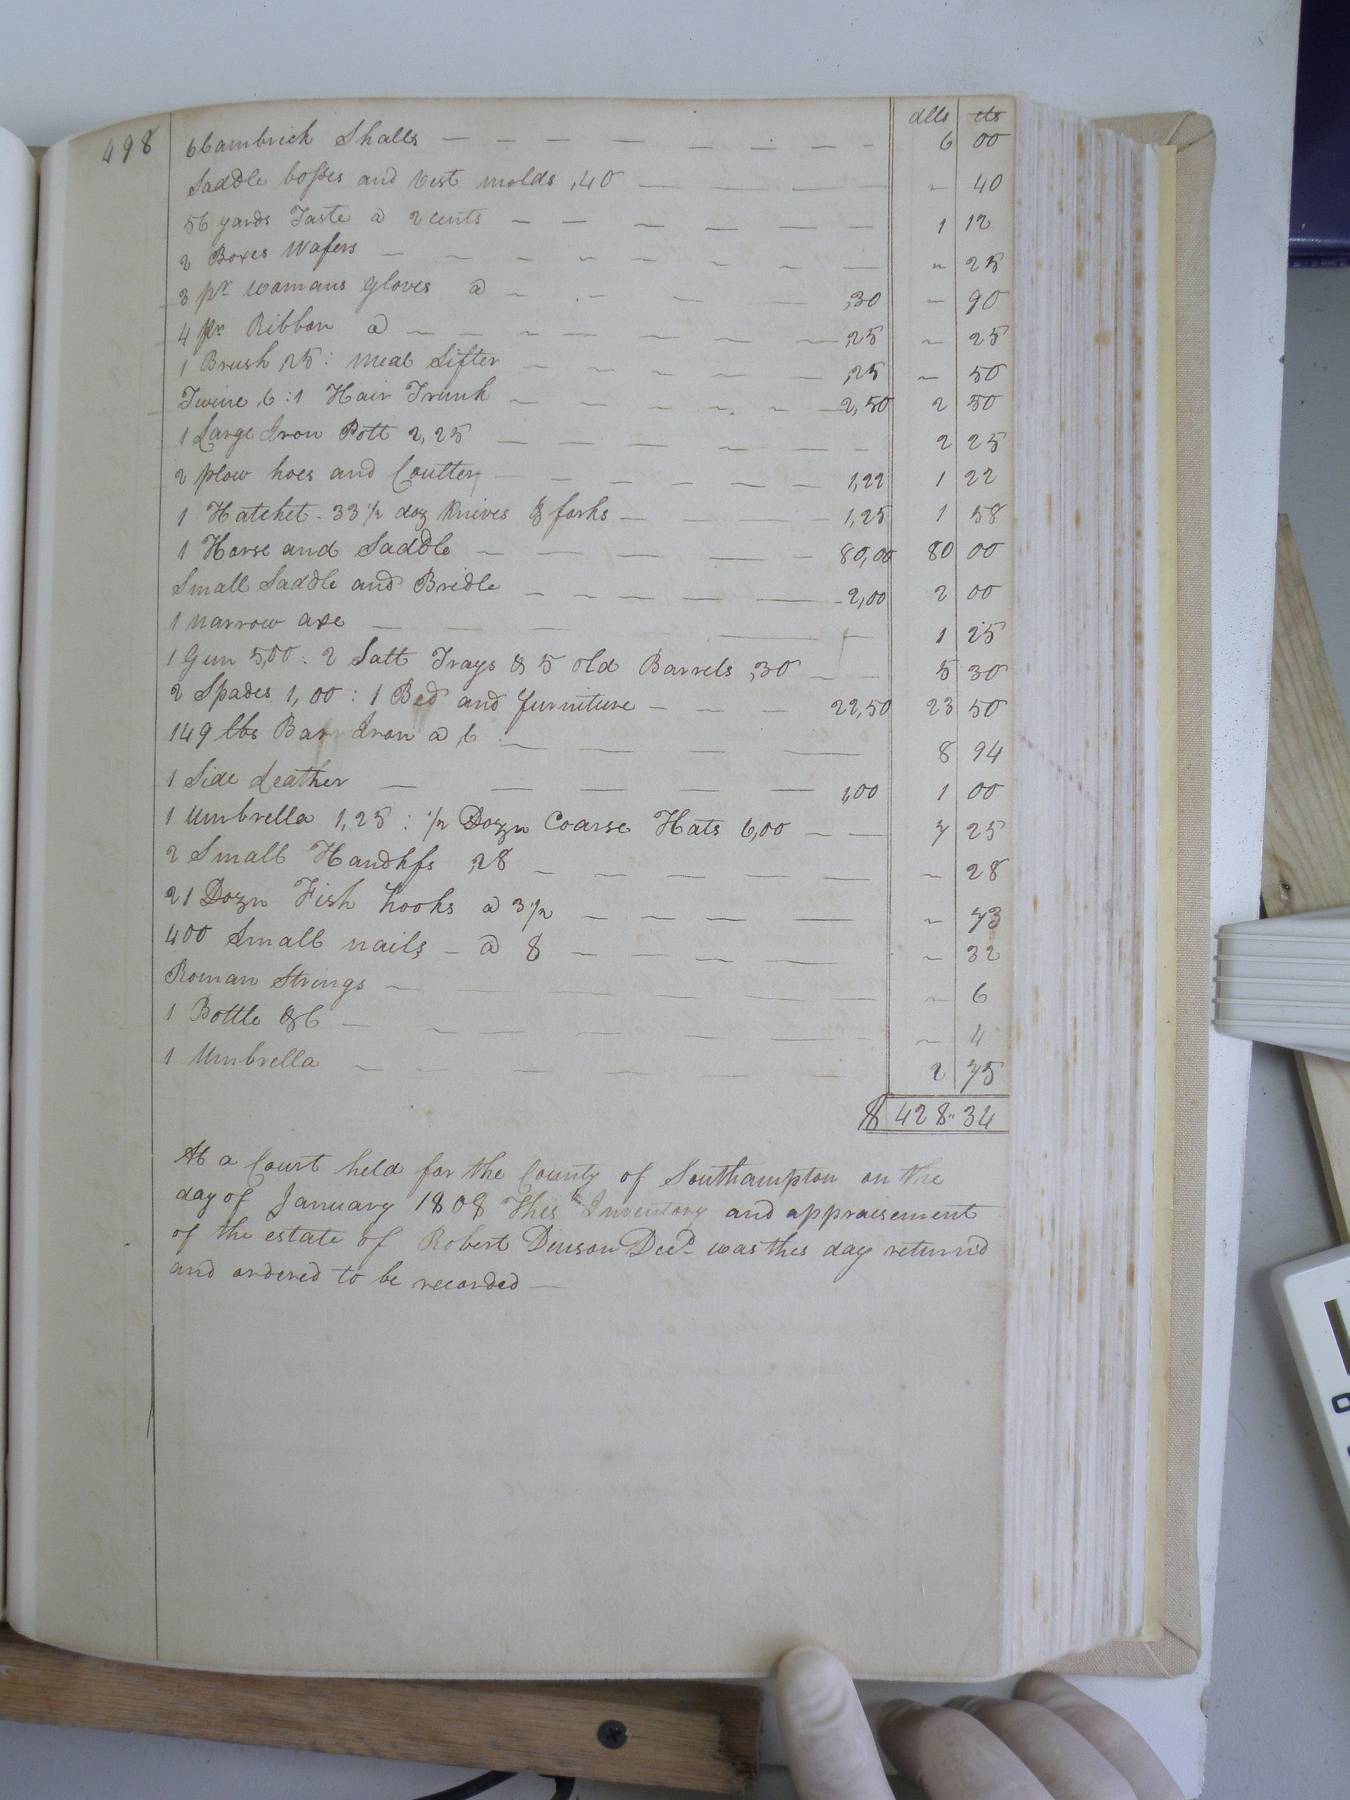 498
dlls cts
6 Cambrick Shalls — — — — — — — 6 00
Saddle bosses and Vest molds ,40 — — — " 40
56 yards Taste @ 2 cents — — — — — — 1 12
2 Boxes Wafers — — — — — — — " 25
3 pr womans gloves @ — — — — ,30 " 90
4 ps Ribbon @ — — — — — ,25 " 25
1 Brush ,25 : meal Sifter — — — — — ,25 " 50
Twine 6 : 1 Hair Trunk — — — — — 2,50 2 50
1 Large Iron Pott 2,25 — — — — — 2 25
2 plow hoes and Coulter — — — — — 1,22 1 22
1 Hatchet - 33 1/2 doz Knives & forks — — — 1,25 1 58
1 Horse and Saddle — — — — — 80,00 80 00
Small Saddle and Bridle — — — — — 2,00 2 00
1 narrow axe — — — — — 1 25
1 Gun 5,00 : 2 Salt Trays & 5 old Barrels ,30 — — 5 30
2 Spades 1,00 : 1 Bed and furniture — — — 22,50 23 50
149 lbs Bar Iron @ 6 — — — — 8 94
1 Side Leather — — — — — 1,00 1 00
1 Umbrella 1,25 : 1/2 Dozn Coarse Hats 6,00 — — 7 25
2 Small Handkfs ,28 — — — — — — " 28
21 Dozn Fish hooks @ 3 1/2 — — — — — " 73
400 Small nails - @ 8 — — — — — " 32
Roman Strings — — — — — — — " 6
1 Bottle &c — — — — — — — " 4
1 Umbrella — — — — — — — 2 75
$ 428 " 34
At a Court held for the County of Southampton on the
day of January 1808 This Inventory and appraisement
of the estate of Robert Denson Decd was this day returnd
and ordered to be recorded —